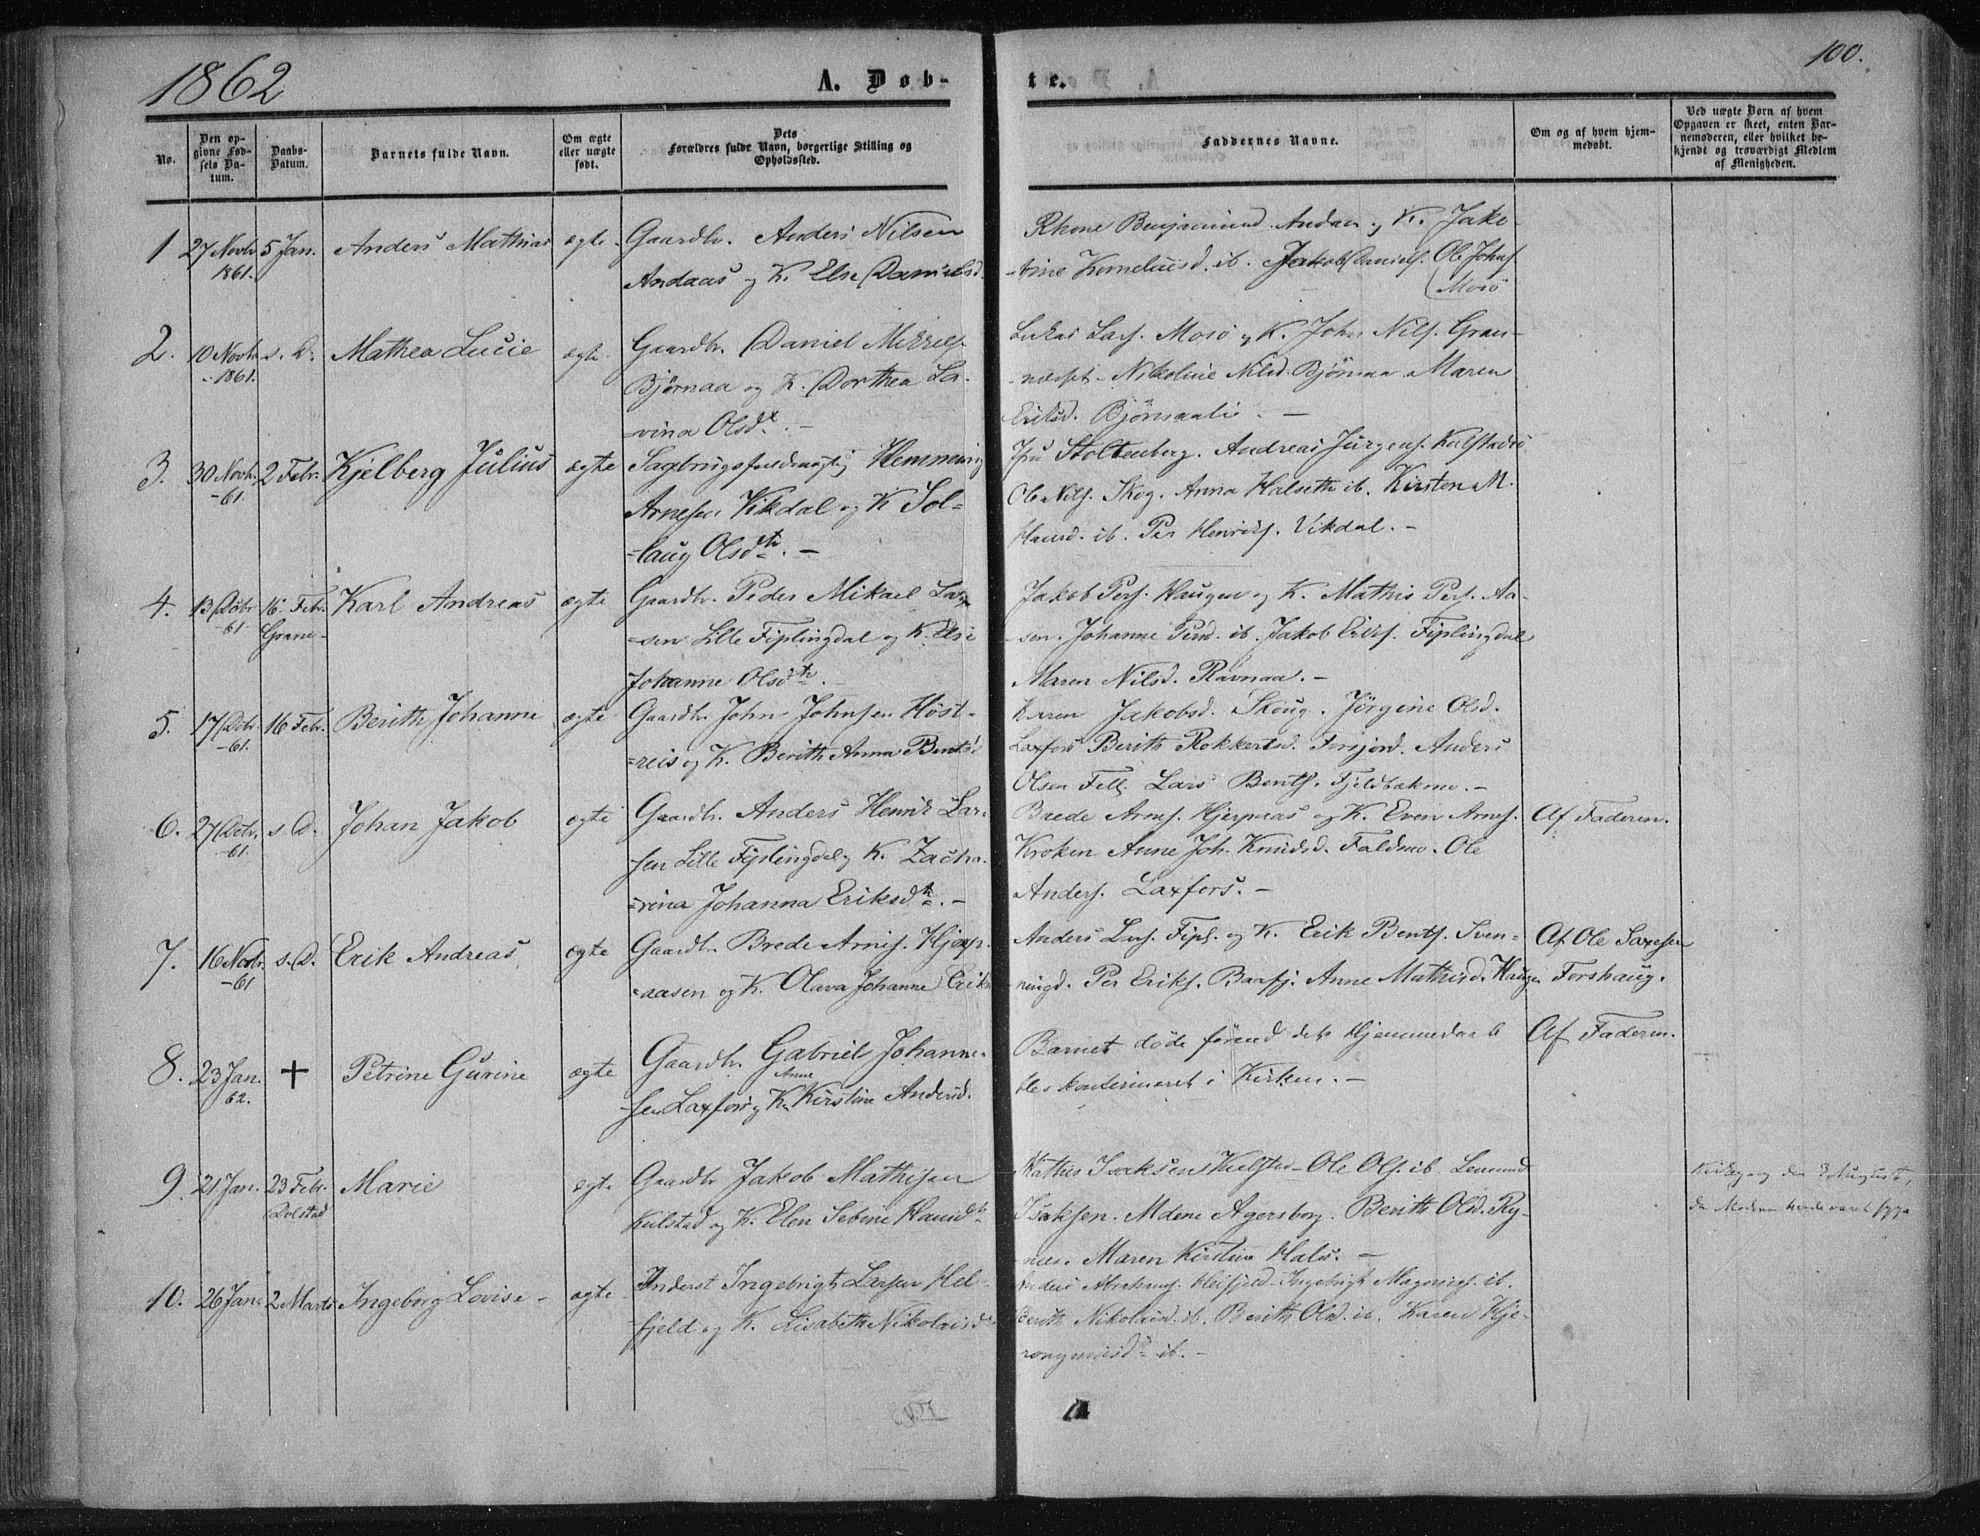 1862
A. Døb-
te.
100.
No.
Den opgivne Fødsels Datum.
Daabs-Datum.
Barnets fulde Navn.
Om ægte eller uægte født.
Dets Forældres fulde Navn, borgerlige Stilling og Opholdssted.
Faddernes Navne.
Om og af hvem hjemmedøbt.
Ved uægte Børn af hvem Opgaven er skeet, enten Barnemoderen, eller hvilket bekjendt og troværdigt Medlem af Menigheden.
1 27 Novbr 5 Jan. Anders Mathias ægte Gaardbr. Anders Nilsen
1861.
Andaas og K. Else Danielsd.
Benjaminsd. Andaas og K. Jako-
-bine Korneliusd. ib. Jakob Daniels. Ole Johns.
Mosø
2. 10 Novbr. s. D. Mathea Lucie ægte Gaardbr. Daniel Mikkels.
1861.
Bjørnaa og K. Dorthea La-
=vina Olsdt. -
Lukas Lars. Mosø og K. John Nils. Gran-
- Nikoline Nilsd. Bjørnaa. Maren
Eriksd. Bjørnaalie. -
3. 30 Novbr. 2 Febr. Kjelberg Julius ægte Sagbrugsfuldmægtig Hemming
-61.
Arnesen Vikdal og K. Sol-
=laug Olsdtr. -
Stoltenberg. Andreas Jürgens. Kulstadsø
Ole Nils. Skog. Anna Halseth ib. Kirsten M.
Hansd. ib. Per Henriks. Vikdal. -
4. 13 Decbr 16. Febr. Karl Andreas ægte Gaardbr. Peder Mikael Lar-
-61. Grane-
=sen Lille Fiplingdal og K. Else
Johanne Olsdtr. -
Jakob Pers. Haugen og K. Mathis Pers. Aa-
sen. Johanne ib. Jakob Eriks. Fiplingdal
Maren Nilsd. Ravnaa. -
5. 17 Dcbr. 16 Febr. Berith Johanne ægte Gaardbr. John Johnsen Høst-
-61.
=reis og K. Berith Anna Bentsd.
Karen Jakobsd. Skoug. Jørgine Olsd.
Laxfors Berith Rokkertsd. Forsjord. Anders
Olsen Lars Bents. Fjeldbækmo. -
6. 27 Dcbr. s. D. Johan Jakob ægte Gaardbr. Anders Henrik Lar-
-61.
sen Lille Fiplingdal og K. Zacha-
=rina Johanna Eriksdtr. -
Brede Arnes. Hjerpaas og K. Even Arnes. Af Faderen.
Kroken Anne Joh. Knudsd. Faldmo. Ole
Anders. Laxfors. -
7. 16 Novbr. s. D. Erik Andreas. ægte Gaardbr. Brede Arnes. Hjerp-
-61
=aasen og K. Olava Johanne Eriks
Anders Lars. Fipl. og K. Erik Bents. Sven- Af Ole Saxesen
ningd. Per Eriks. Baafj. Anne Mathisd. Haugen Forshaug.
8. 23 Jan. + Petrine Gurine ægte Gaardbr. Gabriel Johanne-
62. Anne
sen Laxfors og K. Kirstine Andersd.
Barnet døde førend dets Hjemmedaab Af Faderen.
blev konfirmeret i Kirken. -
9. 21 Jan. 23 Febr. Marie ægte Gaardbr Jakob Mathisen
Dolstad
Kulstad og K. Elen Sebine Hansdt.
Mathis Isaksen Kulstad - Ole Ols. ib. Lemund
Isaksen. Mdme Agersborg. Berith Olsd. Ry-
nes. Maren Kirstine Hals. -
Kirkegang den 3 August,
da Moderen havde været syg
10. 26 Jan. 2 Marts Ingeborg Lovise - ægte Inderst Ingebrigt Larsen Hel-
fjeld og K. Lisabeth Nikolaisd.
Anders Abrahams. Helfjeld. Ingebrigt ib.
Berith Nikolaisd. ib. Berith Olsd. ib. Karen Hje-
ronymusdt. ib. -